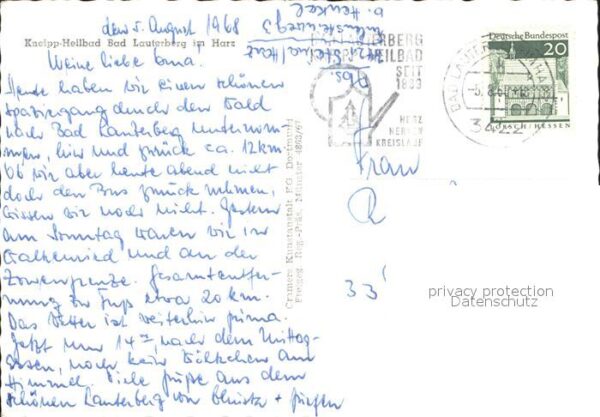 den 5. August 1968
Kneipp-Heilbad Bad Lauterberg im Harz
Meine liebe Oma.
Heute haben wir einen schönen
Spaziergang durch den Wald
nach Bad Lauterberg unternom-
men, hin und zurück ca. 12 km.
Ob wir aber heute abend nicht
doch den Bus zurück nehmen,
wissen wir noch nicht. Gestern
am Sonntag waren wir in
Walkenried und an der
Zonengrenze. Gesamtentfer-
nung zu Fuß etwa 20 km.
Das Wetter ist weiterhin prima.
Jetzt um 14 Uhr, nach dem Mittag-
essen, noch kein Wölkchen am
Himmel. Viele Grüße aus dem
schönen Lauterberg von + Jürgen
Abs.
b. Henkel
Cramers Kunstanstalt KG Dortmund
HEILBAD
SEIT
1833
HERZ
NERVEN
KREISLAUF
BAD LAUTERBERG
-5.8.68
3422
Deutsche Bundespost
20
LORSCH/HESSEN
Frau
33
privacy protection
Datenschutz